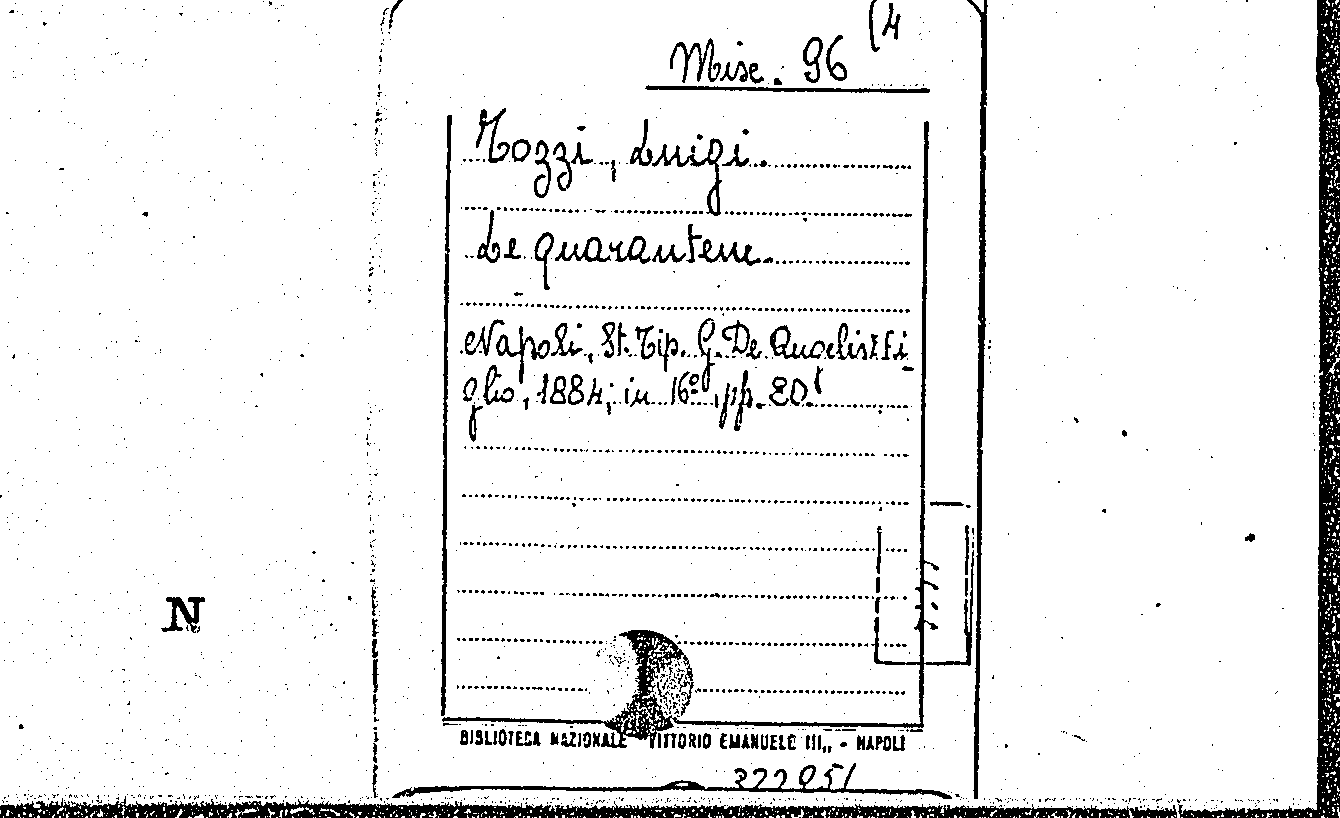 Misc. 96 (4
Tozzi, Luigi.
Le quarantene.
Napoli, St. Tip. G. De
glio, 1884; in 16º, pp. 20.
N
BIBLIOTECA NAZIONALE "VITTORIO EMANUELE III,, - NAPOLI